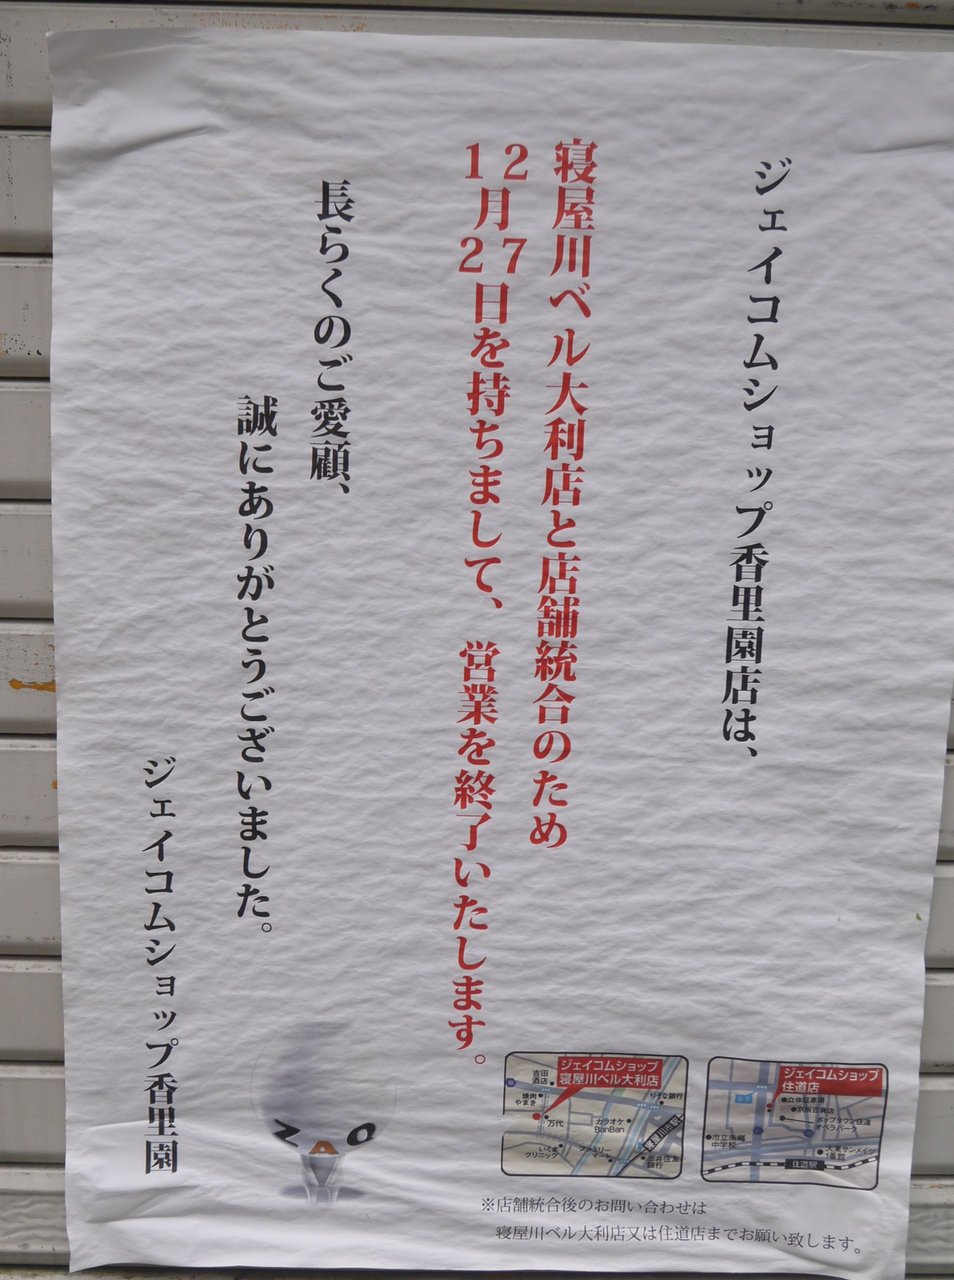 ジェイコムショップ香里園店は、
寝屋川ベル大利店と店舗統合のため
12月27日を持ちまして、営業を終了いたします。
長らくのご愛顧、
誠にありがとうございました。
ジェイコムショップ香里園
ジェイコムショップ
寝屋川ベル大利店
吉田
酒店
焼肉
やまき
万代
カラオケ
BanBan
りそな銀行
寝屋川市駅
いくま
クリニック
ファミリー
マート
三井住友
銀行
ジェイコムショップ
住道店
立体駐車場
京阪百貨店
ポップタウン住道
オペラパーク
市立南郷
中学校
大東サンメイツ
1番館
住道駅
※店舗統合後のお問い合わせは
寝屋川ベル大利店又は住道店までお願い致します。